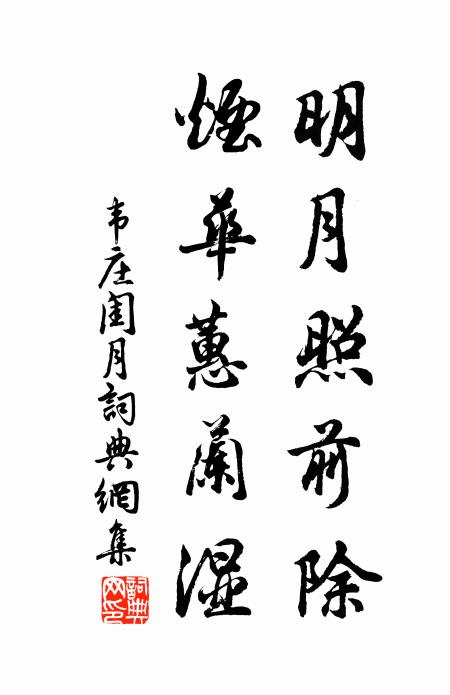 明月照前除
煙華蕙蘭濕
韦庄闺月詞典網集
詞典网印